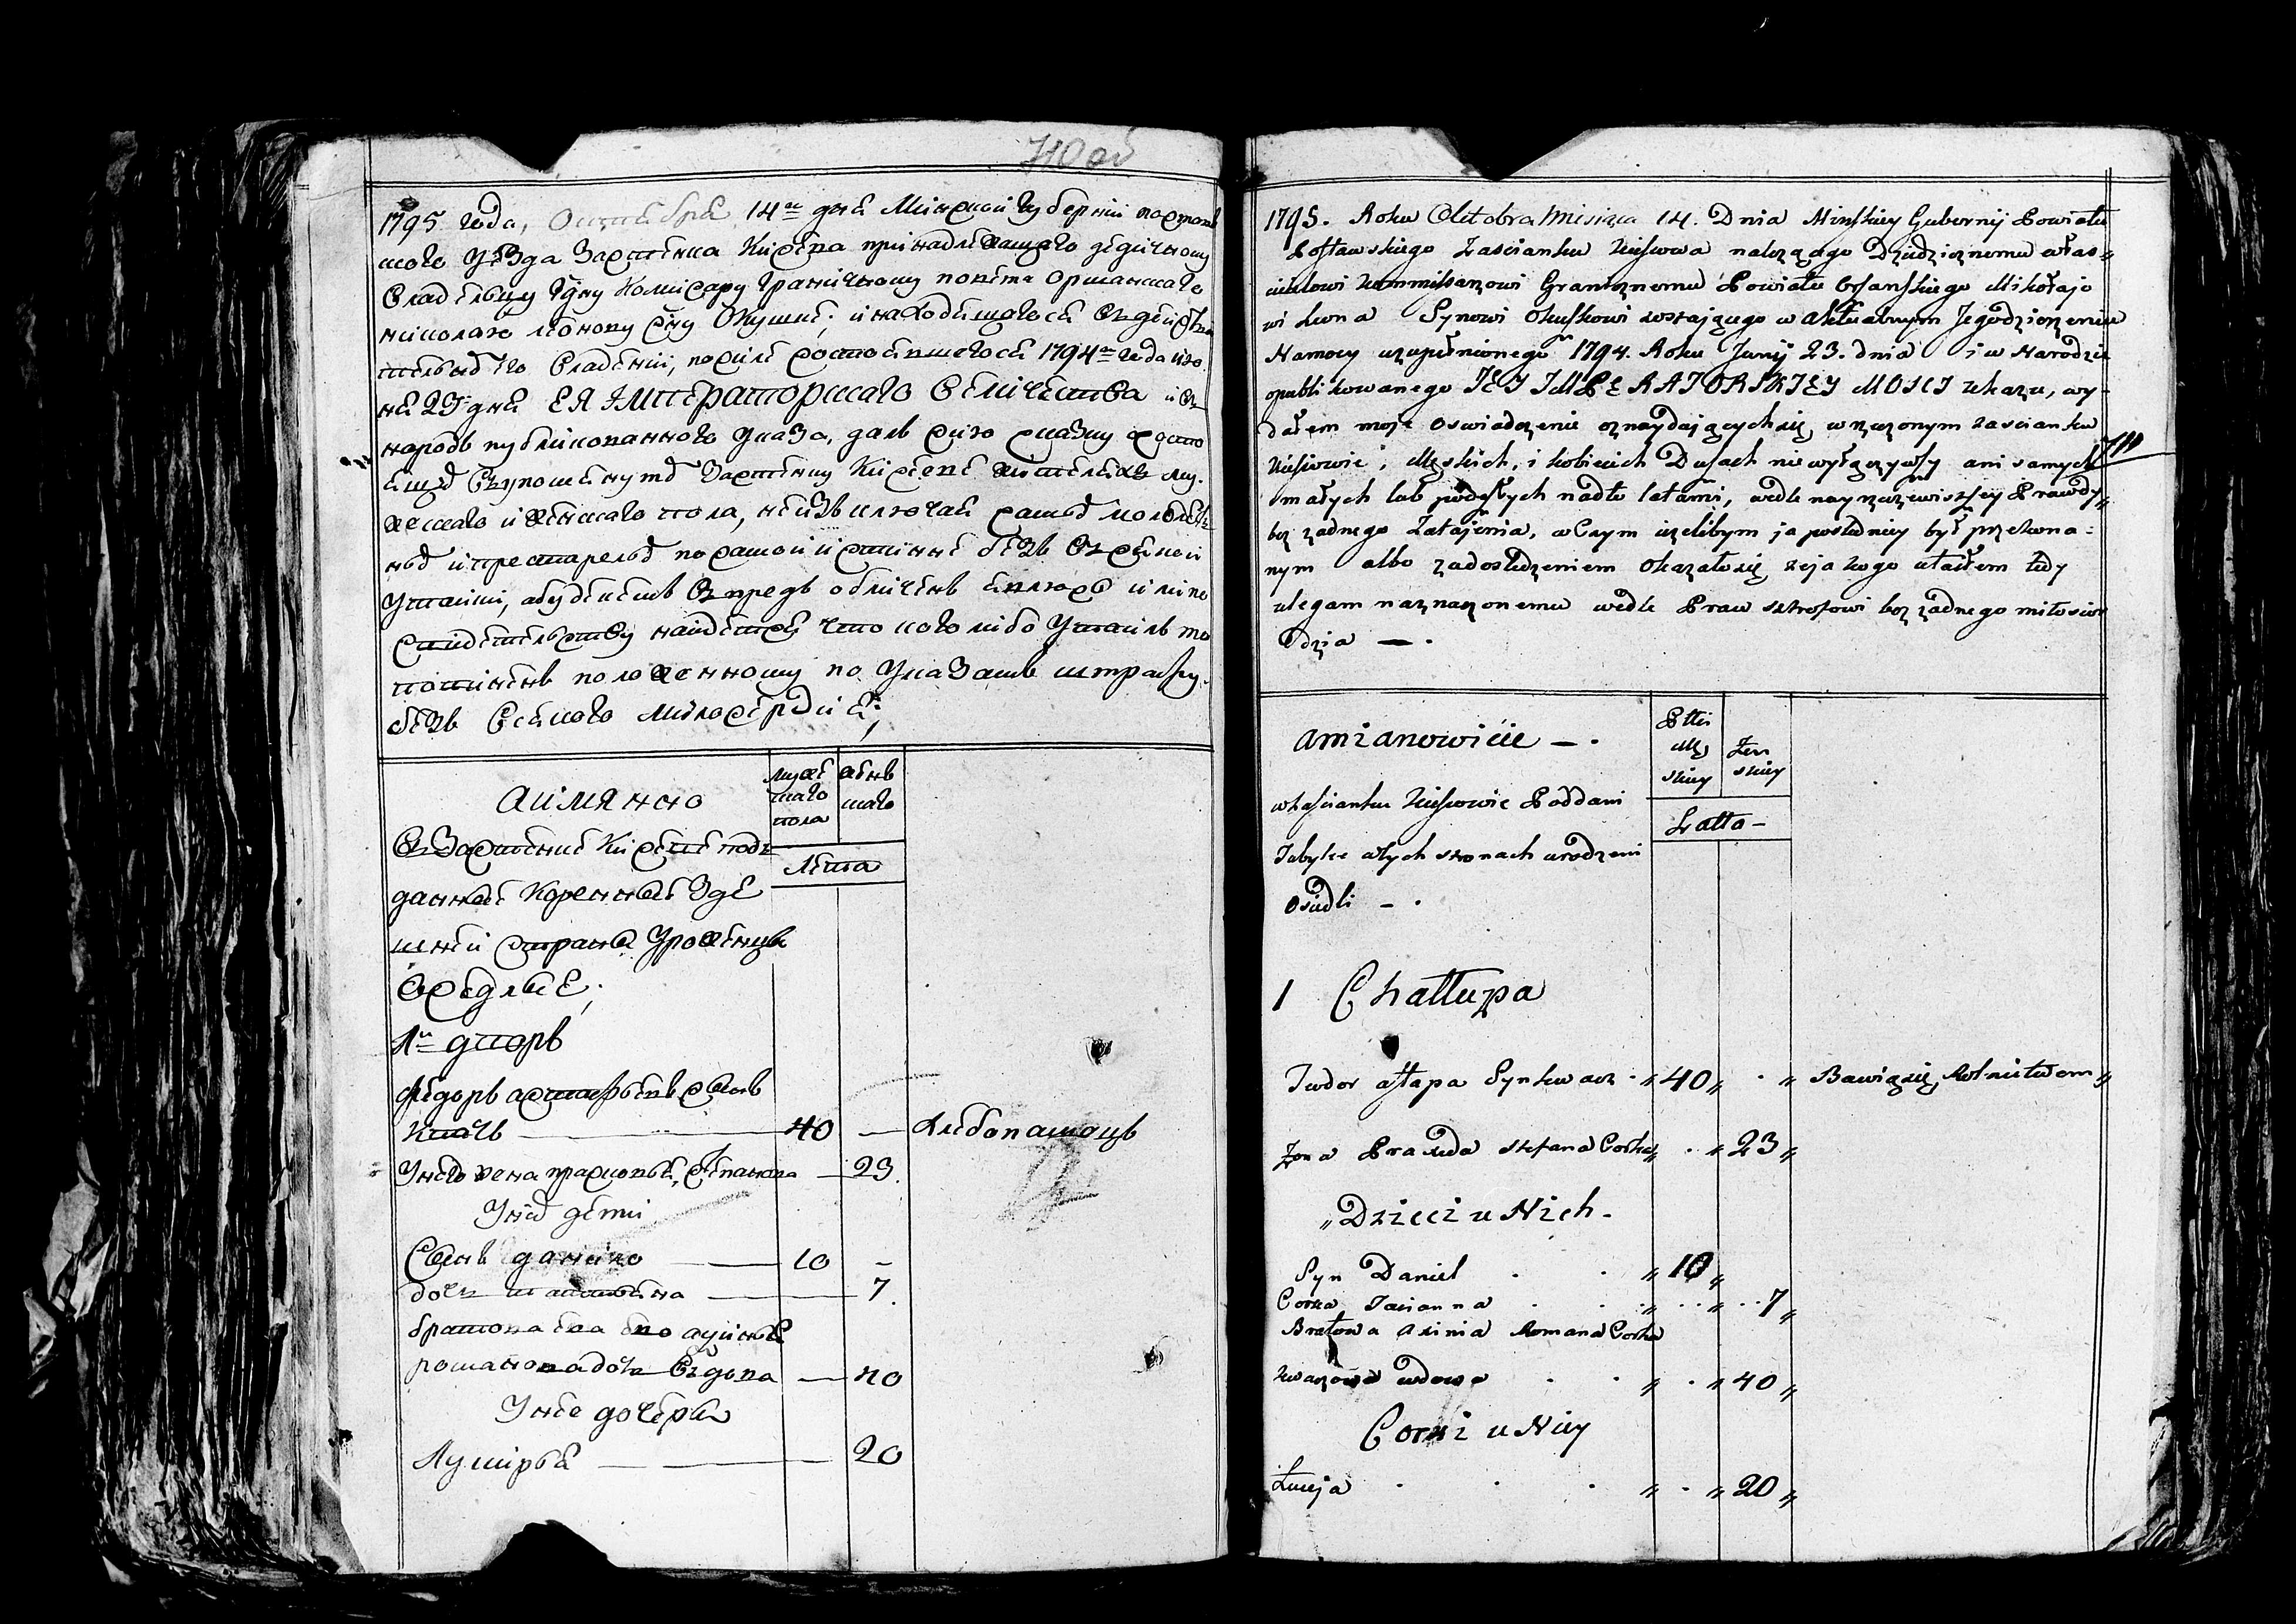 710 об
1795 года, Октября 14го дня Минской губернии постав
ского уезда застенка Кисева принадлежащего дедичному
владельцу г̃дну комисару граничному повета оршанского
николаю леонову с̃ну Окушке, и находящегося в действи
тельном его владении, по силе состоявшегося 1794го года июо
ня 23го дня ЕЯ Императорскаго Величества и в
народъ публикованного указа, далъ сию сказку о состо
ящих в упомянутом застенку Кисеве жителях му
жеска и женска пола, не изъключая самых малолет
ных и престарелых по самой истинне безъ всякой
утайки, а буде я въ предь обличенъ явлюсь или по
свидетельству найдется что кого либо утаилъ то
повиненъ положенному по указамъ штрафу
безъ всякого милосердия;
Аимянно
муже
ска
пола
женъ
ска
Лета
В Застенке Кисеве под
данные коренные зде
шней страны уроженцы
Оседлые;
1й дворъ
Федоръ астафьевъ сынъ
квачъ — 40 — хлебопашецъ
У него жена прасковья степанова — 23
У них дети
Сынъ данило — 10 –
дочь татьяна — 7
братова ево аксинья
романова дочь вдова — 40
У нее дочеръ
Лукирья — 20
1795. Roku Oktobra Miesiąca 14. Dnia Minskiey Gubernij Powiatu
Postawskiego Zascianku Kisiowa należącego Dziedzicznemu włas„
cicielowi Kommissarzowi Granicznemu Powiatu Orszanskiego Mikołajo
wi Leona Synowi Okuszkowi zostającego w aktualnym Jego dziedzeniu
Namocy uzupełnionego 1794. Roku Junij 23. dnia i w Narodzie
opublikowanego JEY IMPERATORSKIEY MOSCI ukazu, wy-
dałem moje oswiadczenie oznaydających się w rzeczonym zascianku
Kisiowie, Męskich, i kobiecich Duszach niewyłączywszy ani samych
711
małych lub podeszłych nadto latami, wedle nayrzeczewiszszey Prawdy„
bez żadnego Zatajenia, w Czym jezelibym ja posledniey był przekona:
nym albo zadosledzeniem Okazałosię żeja kogo utaiłem tedy
ulegam naznaczonemu wedle Praw sztrofowi bez żadnego miłosier
dzia — .
amianowicie — .
Płci
Mę
skiey
Żen
skiey
Latta –
w Zascianku Kisiowie Poddani
Tubylce w tych stronach urodzeni
Osiedli – .
1 Chattupa
Fiedor astapa Syn kwacz . „ 40 „ . „ Bawiąsię Rolnictwem „
Żona Praskeda stefana Corka „ . „ 23 „
„ Dzieci u Nich –
Syn Daniel . . „ 10 „
Corka Tacianna . . „ . . „ . . 7 „
Bratowa axinia Romana Corka
kwaczowa wdowa . . „ . „ 40 „
Corki u Niey
Łucija . . . „ . „ 20 „